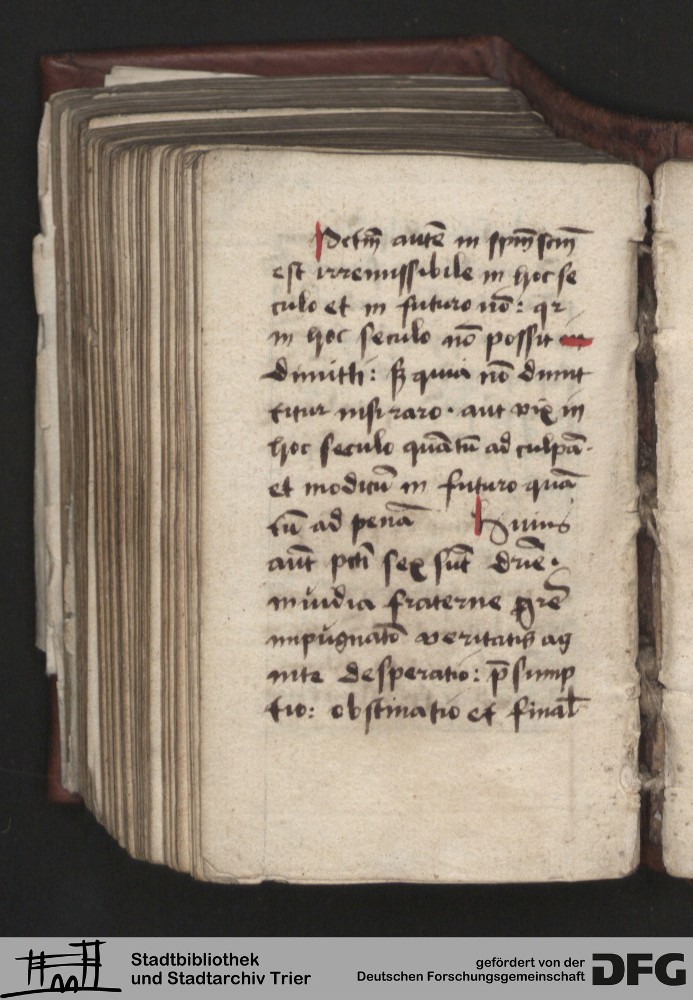 Pctm̄ autē in spm̄scm̄
est irremissibile in hoc se
culo et in futuro nō: qr
in hoc seculo nō possit in
dimitti: sꝫ quia nō dimit
titur nisi raro · aut vix in
hoc seculo quātū ad culpā ·
et modicū in futuro quā
tū ad penā Huius
aūt pcti sex sūt drīe ·
inuidia fraterne grē
inpugnatō veritatis ag
nite desperatio: p̄sump
tio: obstinatio et final
Stadtbibliothek
und Stadtarchiv Trier
gefördert von der
Deutschen Forschungsgemeinschaft
DFG